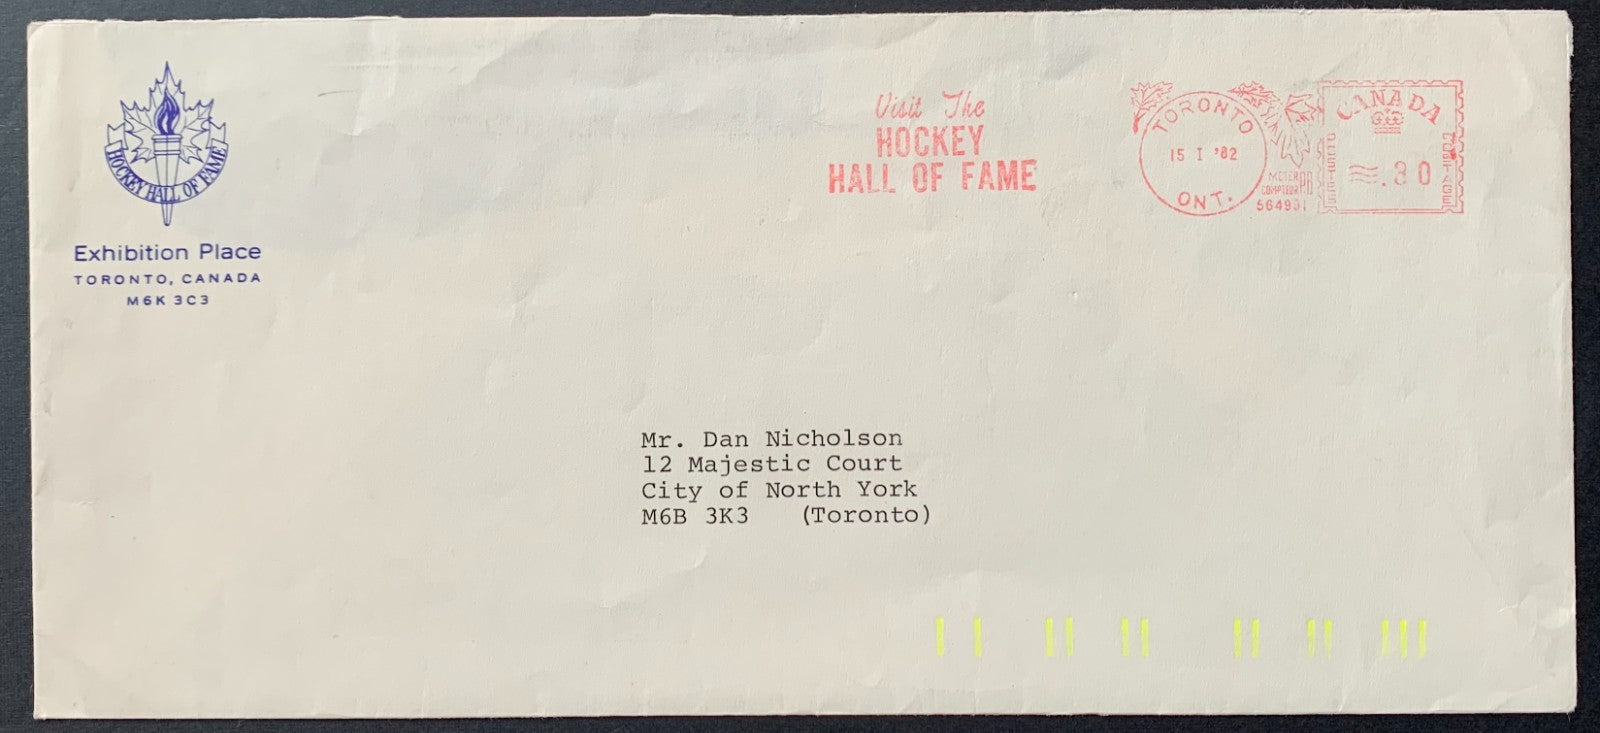 HOCKEY HALL OF FAME
Exhibition Place
TORONTO, CANADA
M6K 3C3
Visit The
HOCKEY
HALL OF FAME
TORONTO
15 I '82
ONT.
METER
COMPTEUR
PB
56499
POSTES
CANADA
.30
POSTAGE
Mr. Dan Nicholson
12 Majestic Court
City of North York
M6B 3K3 (Toronto)